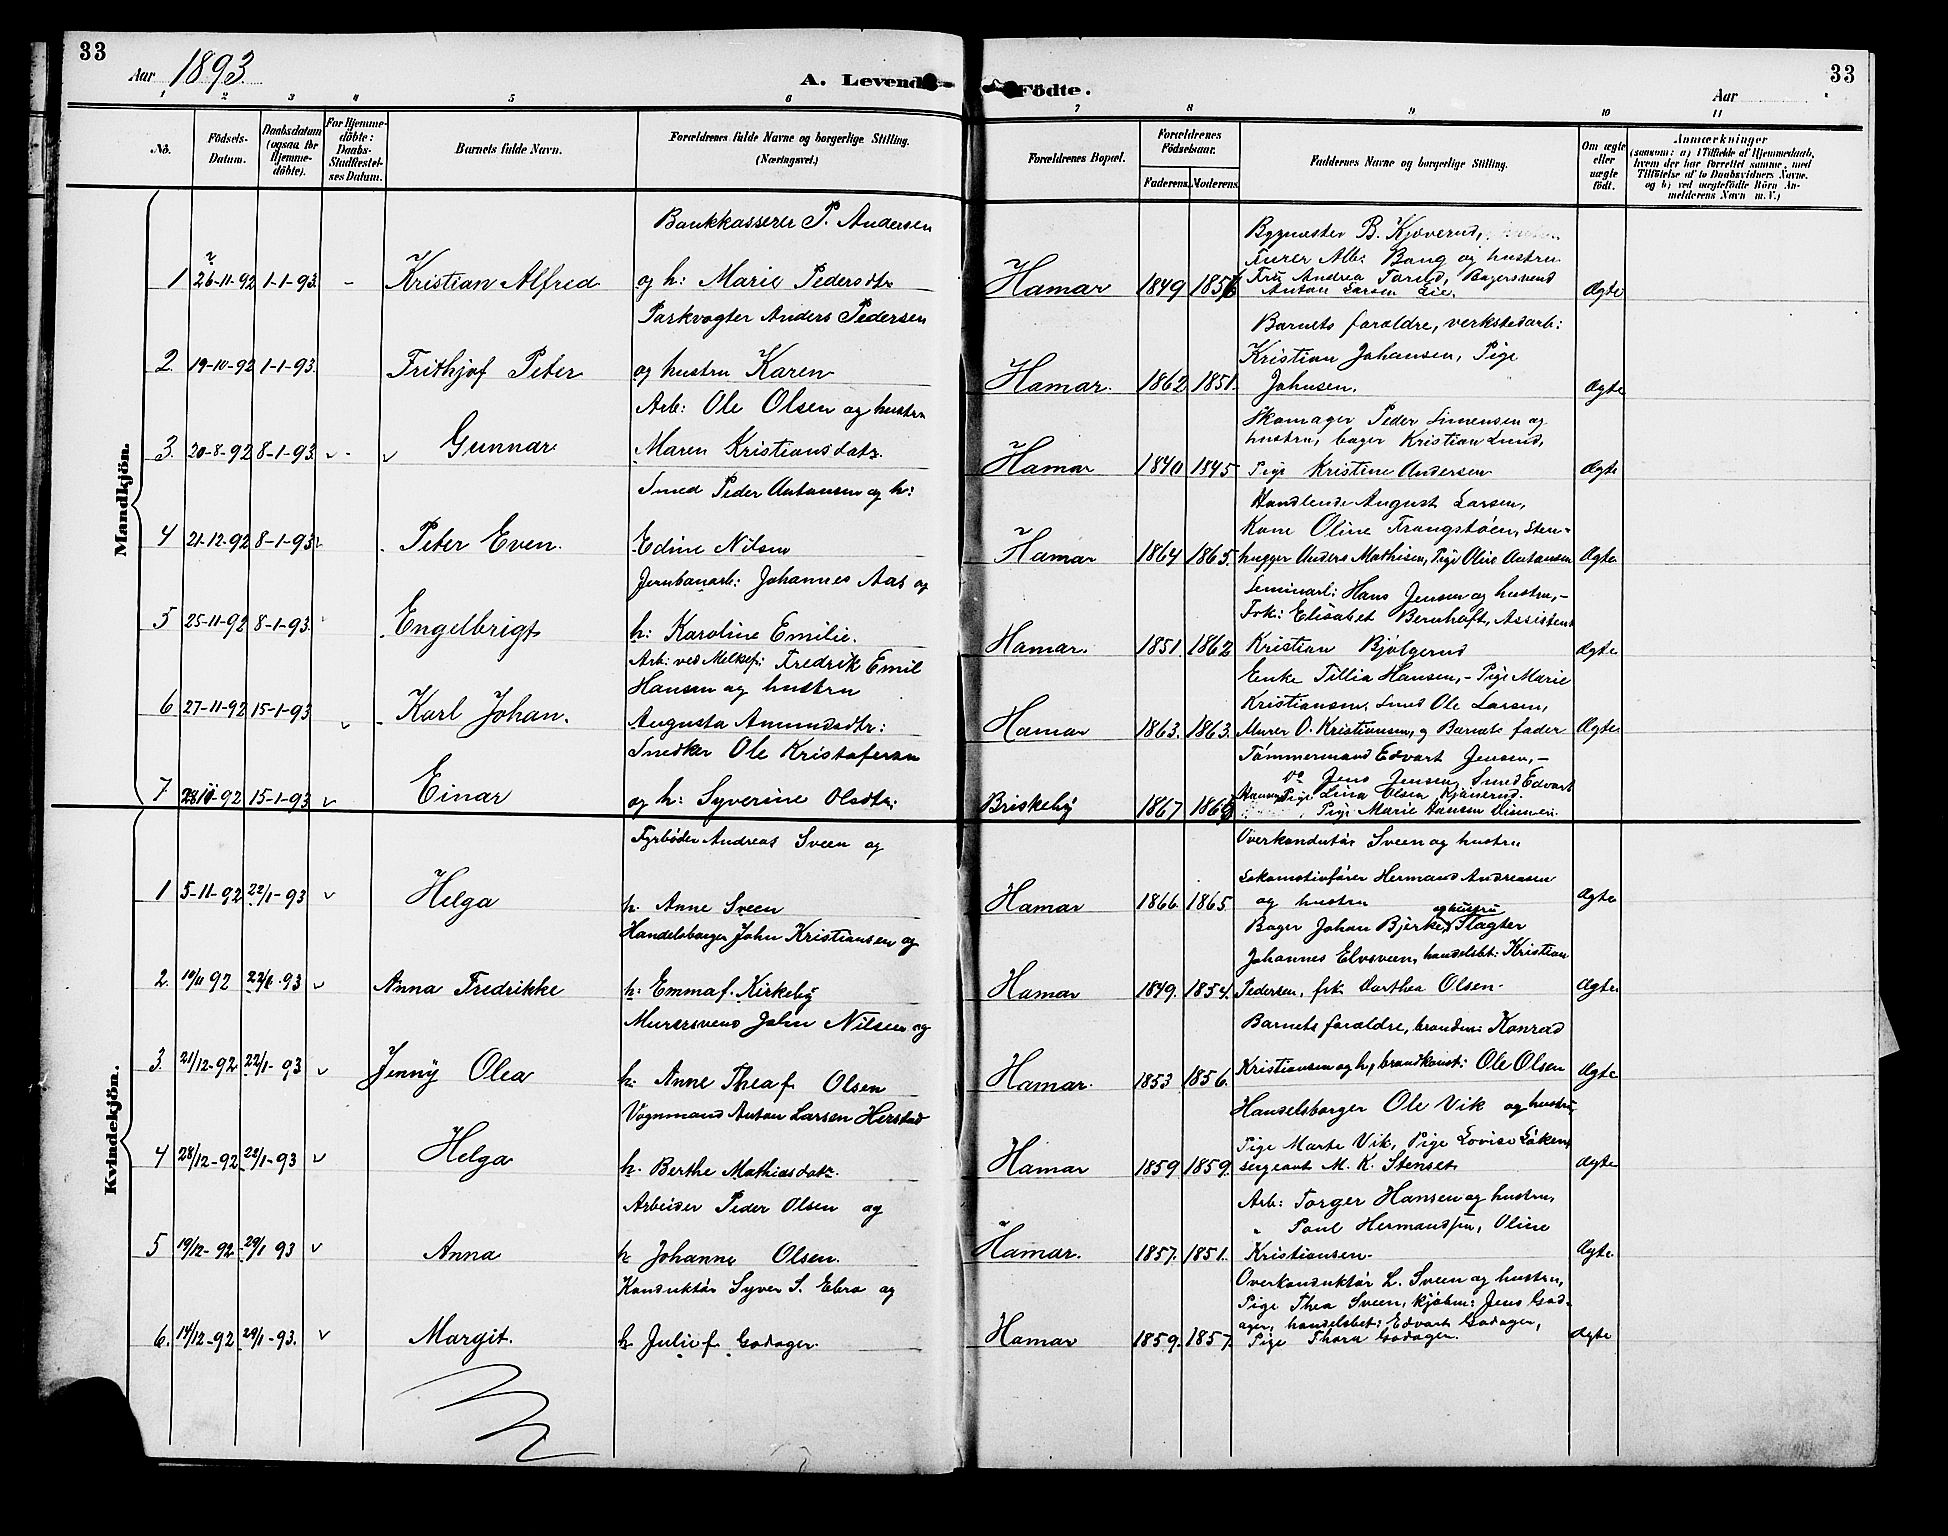 33
Aar 1893.
A. Levende
Födte.
Aar
33
1 2 3 4 5 6 7 8 9 10 11
No.
Födsels-Datum.
Daabsdatum (ogsaa for Hjemme-döbte).
For Hjemme-döbte: Daabs-Stadfæstel-ses Datum.
Barnets fulde Navn.
Forældrenes fulde Navne og borgerlige Stilling. (Næringsvei.)
Forældrenes Bopæl.
Forældrenes Födselsaar.
Faderens. Moderens.
Faddernes Navne og borgerlige Stilling.
Om ægte eller uægte födt.
Anmærkninger
(saasom: a) i Tilfælde af Hjemmedaab, hvem der har forrettet samme, med Tilföielse af to Daabsvidners Navne. og b) ved uægtefödte Börn An-melderens Navn m. V.)
Mandkjön.
Bankkasserer P. Andersen
Bygmester B. Kjöverud,
Murer Alb: Bang og hustru
1 26-11-92 1-1-93. - Kristian Alfred og h: Marie Pedersdtr Hamar 1849 Fru Andrea Torsted, Bagersvend Ægte
Anton Larsen Lie.
Parkvogter Anders Pedersen
Barnets forældre, verkstedarb:
Kristian Johansen, Pige
2. 19-10-92 1-1-93. Frithjof Peter og hustru Karen Hamar. 1862 1851. Johnsen. Ægte
Arb: Ole Olsen og hustru
Skomager Peder Simensen og
hustru, bager Kristian Lund,
3. 20-8-92 8-1-93. Gunnar Maren Kristiansdatr. Hamar 1840 1845 Pige Kristine Andersen Ægte
Smed Peder Antonsen og h:
Handlende August Larsen,
Kone Oline Frangstöen, Sten-
4 21-12-92 8-1-93. Peter Even. Edine Nilsen Hamar 1864 1865. hugger Anders Mathisen, Pige Oline Antonsen Ægte
Jernbanarb: Johannes Aas og
Seminarl: Hans Jensen og hustru, -
Frk: Elisabet Bernhoft, Assistent
5 25-11-92 8-1-93. Engelbrigt h: Karoline Emilie. Hamar. 1851. 1862 Kristian Bjölgerud Ægte
Arb: ved Melkef: Fredrik Emil
Enke Tillia Hansen, - Pige Marie
Hansen og hustru
Kristiansen, Smed Ole Larsen,
6 27-11-92 15-1-93 Karl Johan. Augusta Amundsdtr: Hamar 1863. 1863. Murer O. Kristiansen, og Barnets fader Ægte
Snedker Ole Kristofersen
Tömmermand Edvart Jensen, -
do Jens Jensen, Smed Edvart
7 92 15-1-93 Einar og h: Syverine Olsdtr: Briskeby 1867 Hansen Pige Lina Olsen Kjönerud.
Pige Marie Hansen Ægte
Kvindekjön.
Fyrböder Andreas Sveen og
Overkonduktör Sveen og hustru
Lokomotivförer Hermand Andreasen
1 5-11-92 22/1-93 Helga h. Anne Sveen Hamar 1866. 1865. og hustru Ægte
Handelsborger John Kristiansen og
og hustru
Bager Johan Bjerke, Slagter
Johannes Elvsveen, handelsbt: Kristian
2. 19/11 92 22/1-93 Anna Fredrikke h: Emma f. Kirkeby Hamar 1849. 1854. Pedersen, frk. Dorthea Olsen. Ægte.
Murersvend John Nilsen og
Barnets forældre, brandm: Konrad
3. 21/12-92 22/1-93 Jenny Olea h: Anne Thea f. Olsen Hamar. 1853 1856. Kristiansen og h, brandkonst: Ole Olsen Ægte
Vognmand Anton Larsen Herstad
Handelsborger Ole Vik og hustru,
Pige Marte Vik, Pige Lovise Löken,
4 28/12-92 22/1-93 Helga h. Berthe Mathiasdatr. Hamar 1859 1859. sergeant M. K. Stenset Ægte
Arbeider Peder Olsen og
Arb: Torger Hansen og hustru,
" Paul Hermansen, Oline
5 19/12-92 29/1 93 Anna h Johanne Olsen. Hamar. 1857. 1851. Kristiansen Ægte.
Konduktör Syver S. Ebro og
Overkonduktör L. Sveen og hustru,
Pige Thea Sveen, kjöbm: Jens God-
ager, handelsbet: Edvart Godager,
6. 14/12-92 29/1-93. Margit. h. Julie f. Godager. Hamar 1859. 1857. Pige Thora Godager. Ægte